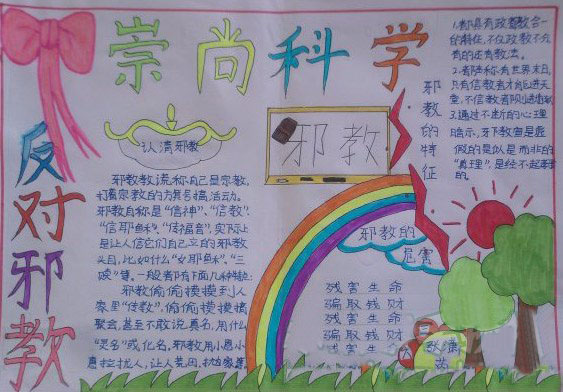 崇尚科学
反对邪教
认清邪教
邪教教谎称自己是宗教,
打着宗教的方其号搞活动。
邪教自称是“信神”、“信教”、
“信耶稣”、“传福音”,实际上
是让人信它们自己立的邪教
头目,比如什么“女耶稣”、“三
赎”等。一般都有下面几种特
邪教偷偷摸摸到人
家里“传教”,偷偷摸摸搞
聚会,甚至不敢说真名,用什么
“灵名”或化名,邪教用小恩小
惠拉拢人,让人
邪教
邪教的特征
1.都具有政教合一
的特征,不仅政教不分
有的还有教法。
2.都
有世界末日,
只有信教者才能进天
堂,不信教者
又通过不断的心理
暗示,
假的是似是而非的
“真理”,是经不起
邪教的
危害
残害生命
骗取钱财
残害生命
骗取钱财
残害生